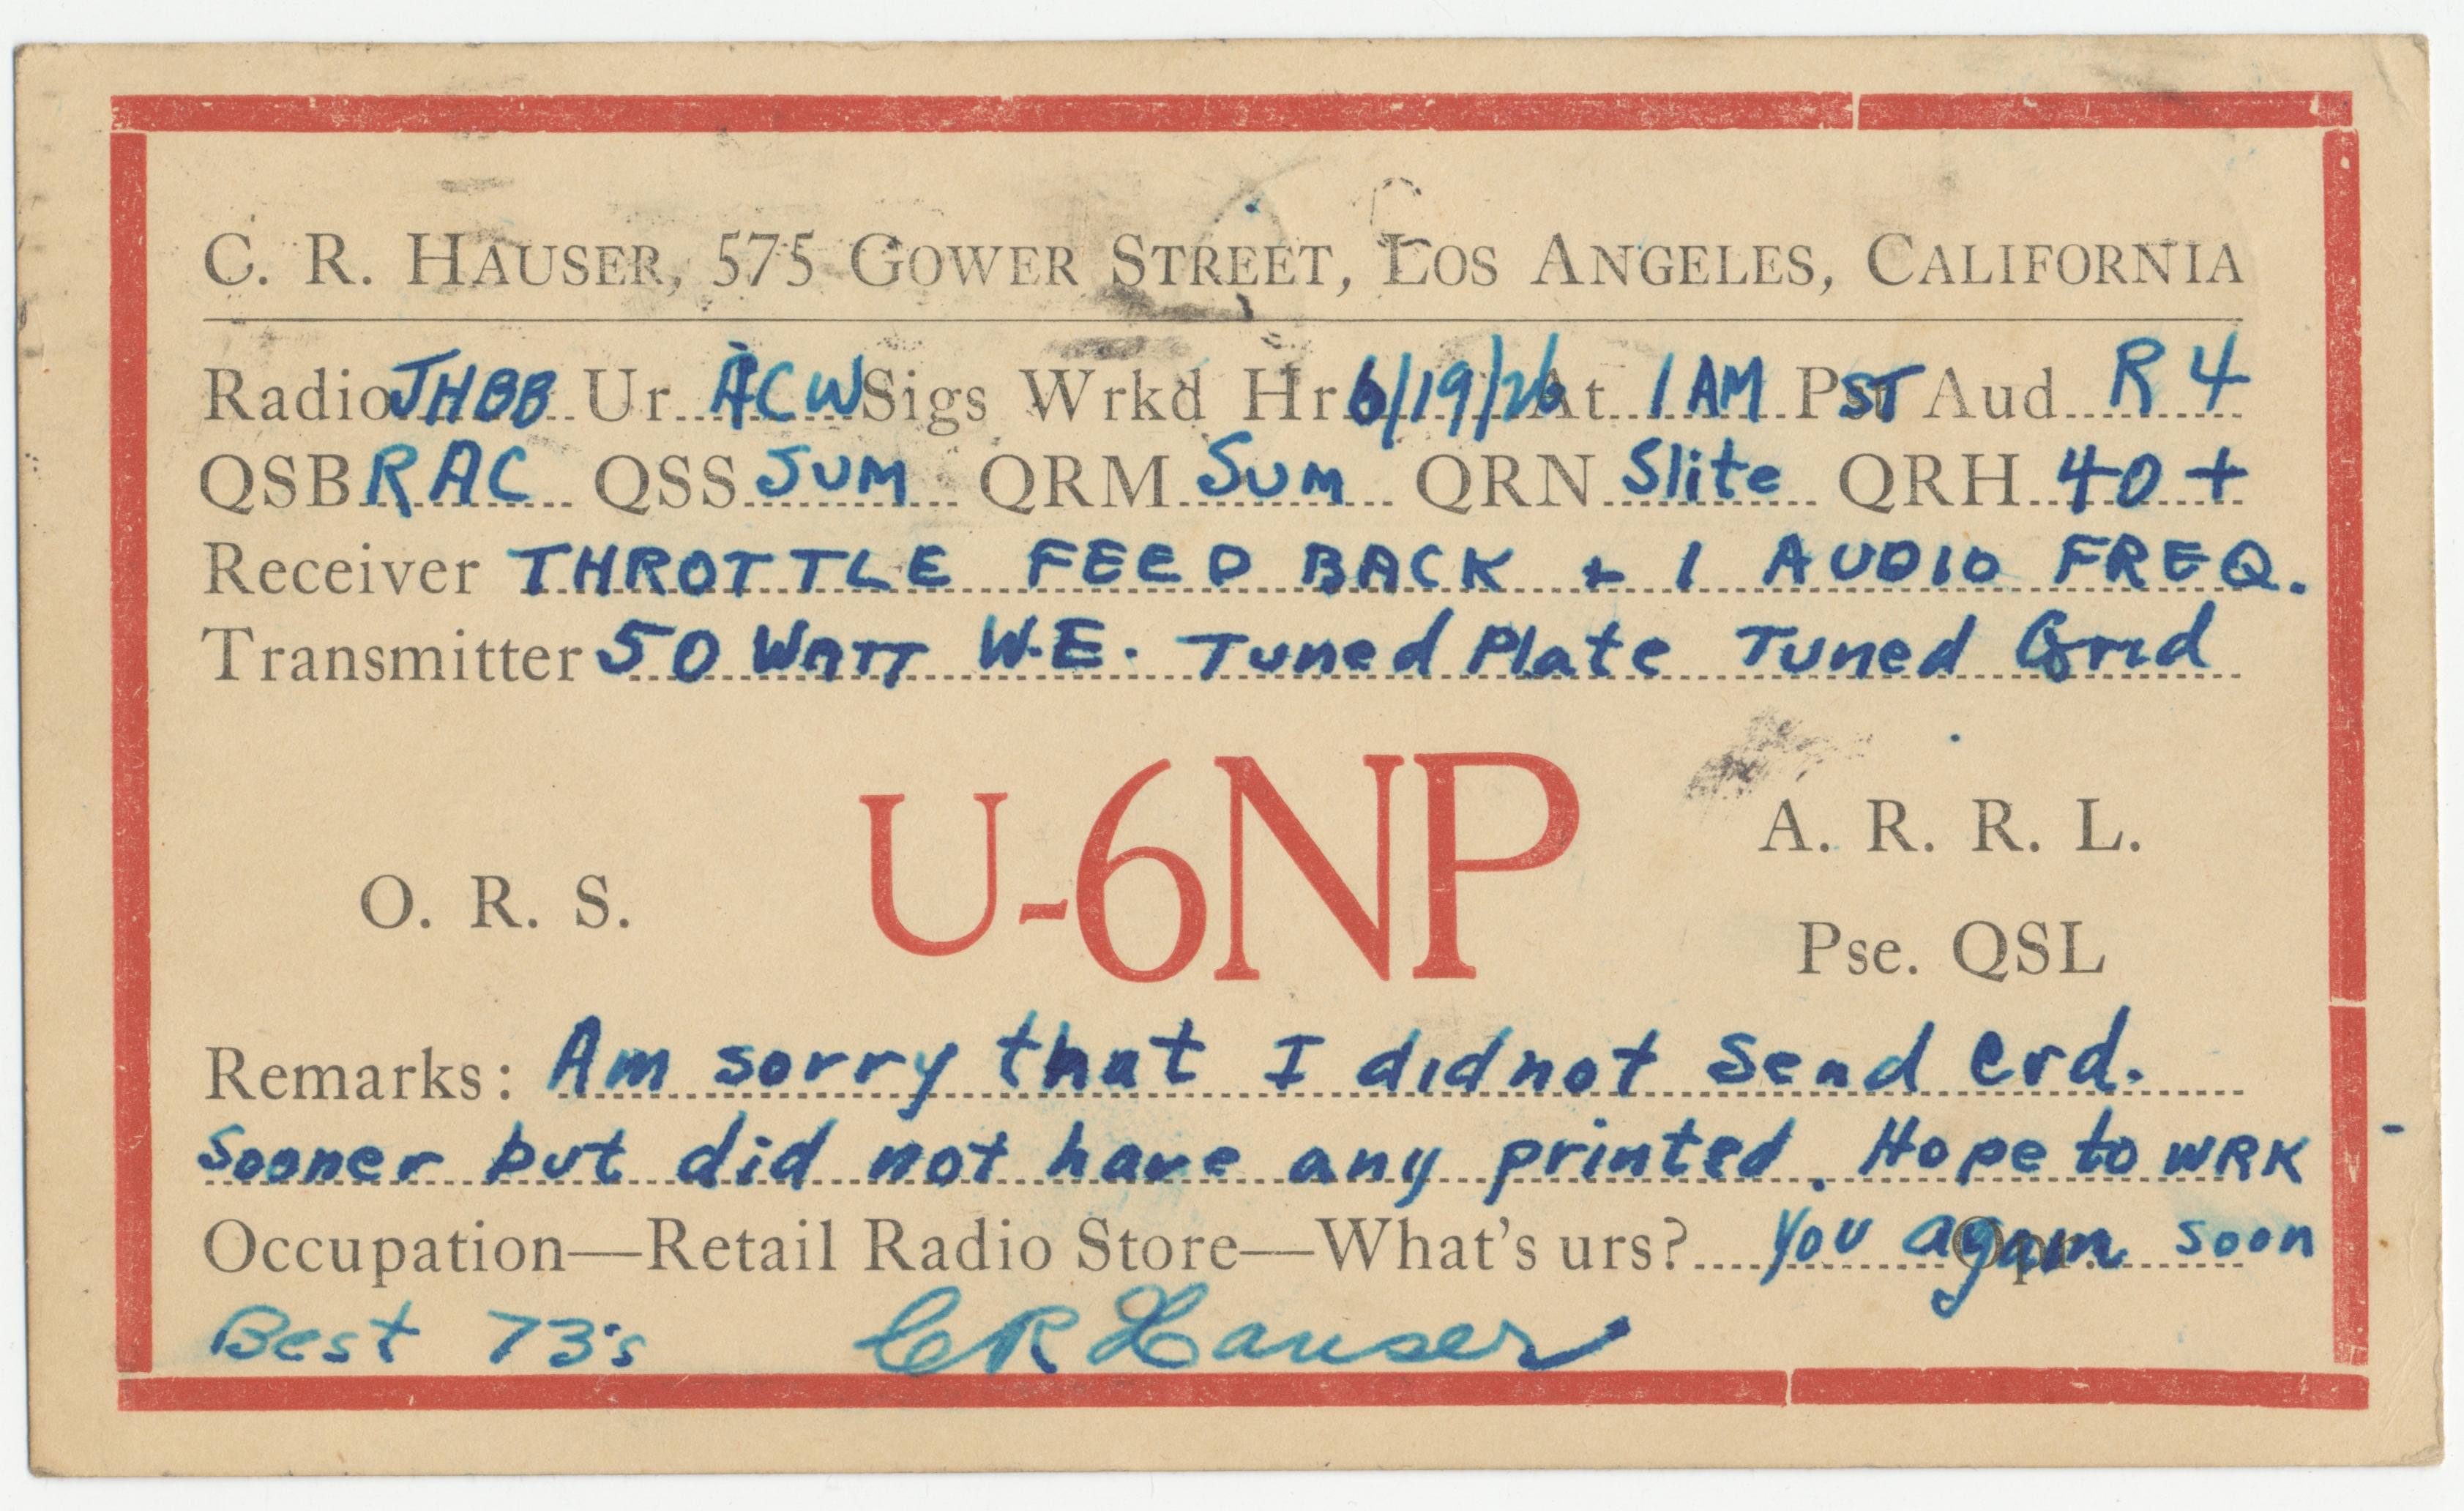 C. R. HAUSER, 575 GOWER STREET, LOS ANGELES, CALIFORNIA
Radio JHBB Ur ACW Sigs Wrkd Hr 6/19/26 At 1 AM PST Aud R 4
QSB RAC QSS SUM QRM Sum QRN Slite QRH 40 +
Receiver THROTTLE FEED BACK + 1 AUDIO FREQ.
Transmitter 50 WATT W.E. Tuned Plate Tuned Grid
U-6NP
A. R. R. L.
O. R. S.
Pse. QSL
Remarks: Am sorry that I didnot Send crd.
Sooner but did not have any printed. Hope to WRK
Occupation—Retail Radio Store—What's urs? You again soon Opr.
Best 73's CR Hauser